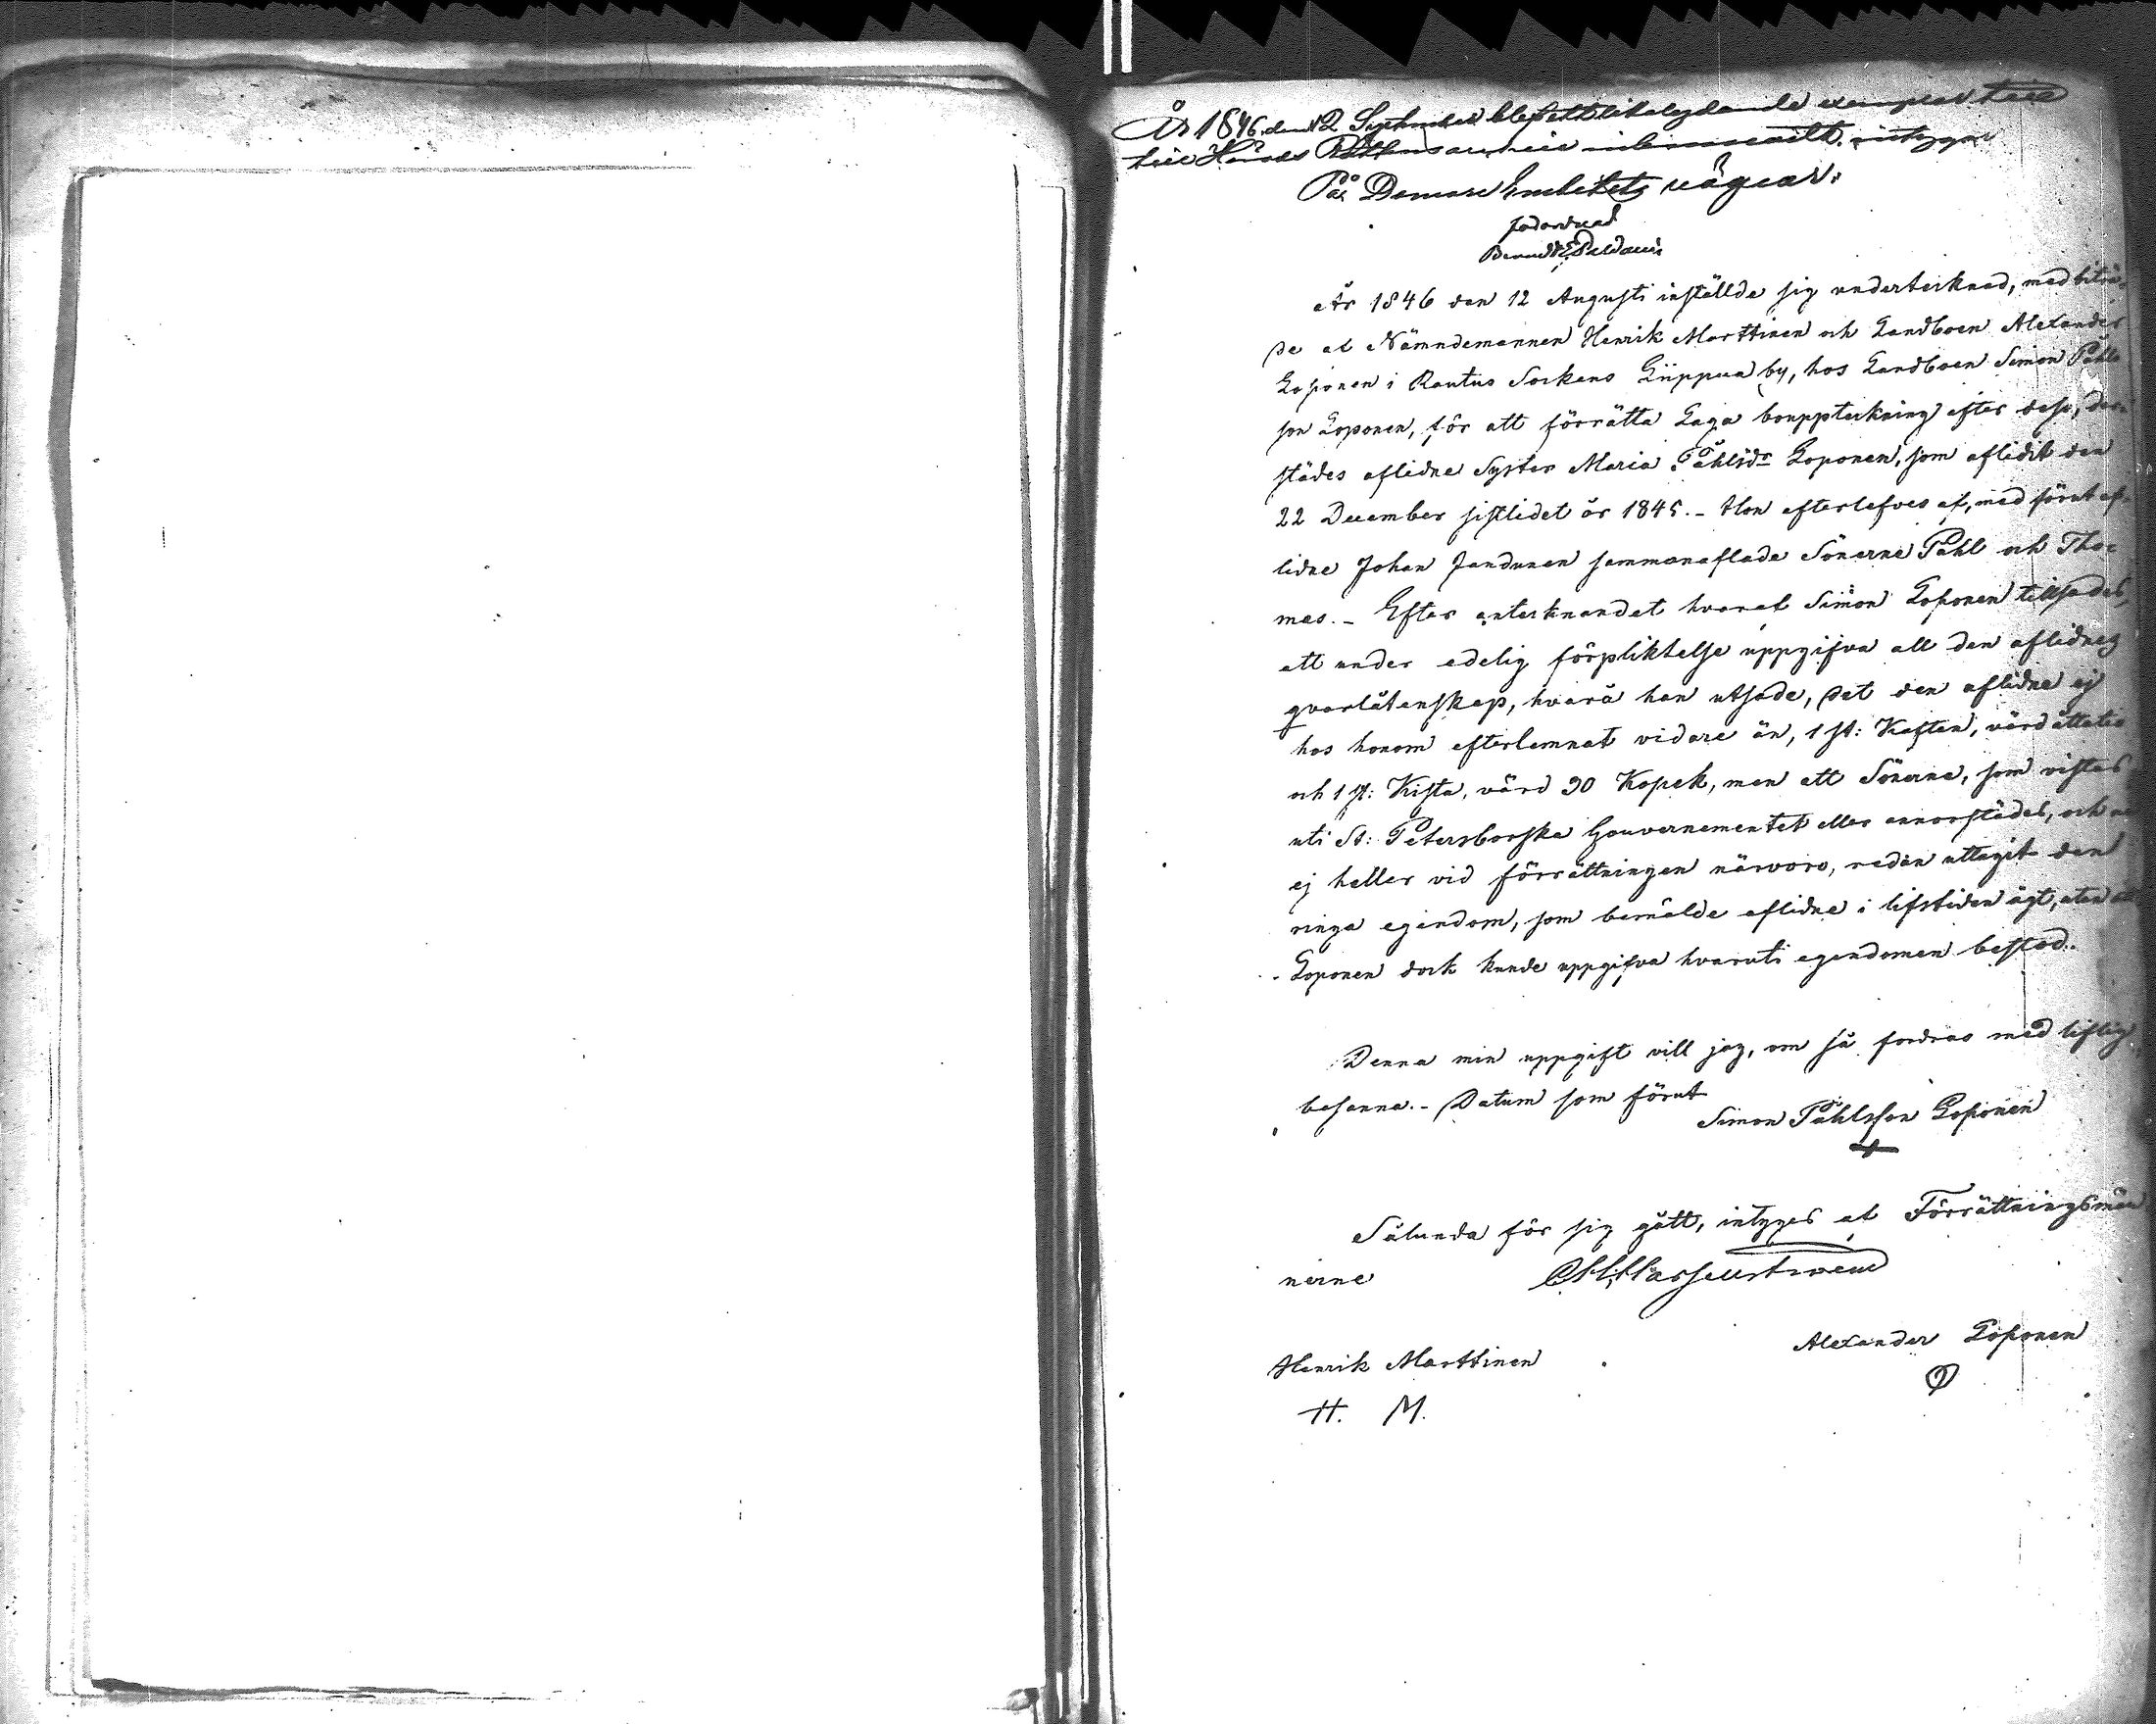 År 1846. den 12 September blef ett likalydande exemplar till
till Härads Rättens arkiv inlemnadt. intygar
På Domare Embetets vägnar:
förordnad
Berndt E Paldani
År 1846 den 12 Augusti inställde sig undertecknad, med biträ-
de af Nämndemannen Henrik Marttinen och Landboen Alexander
Loponen i Rautus Sockens Liippua by, hos Landboen Simon Påhls
son Loponen, för att förrätta Laga bouppteckning efter dess, der-
städes aflidne Syster Maria Påhlsdr Loponen, som aflidit den
22 December sistlidet år 1845. - Hon efterlefves af, med förut af-
lidne Johan Jandunen sammanaflade Sönerne Påhl och Tho-
mas. - Efter antecknandet hvaraf Simon Loponen tillsades,
att under edelig förpliktelse uppgifva all den aflidnes
qvarlåtenskap, hvarå han utsade, det den aflidne ej
hos honom efterlemnat vidare än, 1 st: Kaftan, värd åttatio
och 1 st: Kista, värd 30 Kopek, men att Sönerne, som vistas
uti St: Petersborgska Gouvernementet eller annorstädes, och
ej heller vid förrättningen närvoro, redan uttagit den
ringa egendom, som bemälde aflidne i lifstiden ägt, utan att
Loponen dock kunde uppgifva hvaruti egendomen bestod.
Denna min uppgift vill jag, om så fordras med liflig
besanna. - Datum som förut
Simon Påhlsson Loponen
Sålunda för sig gått, intyges af Förrättningsmän
nerne
Henrik Marttinen
Alexander Loponen
H. M.